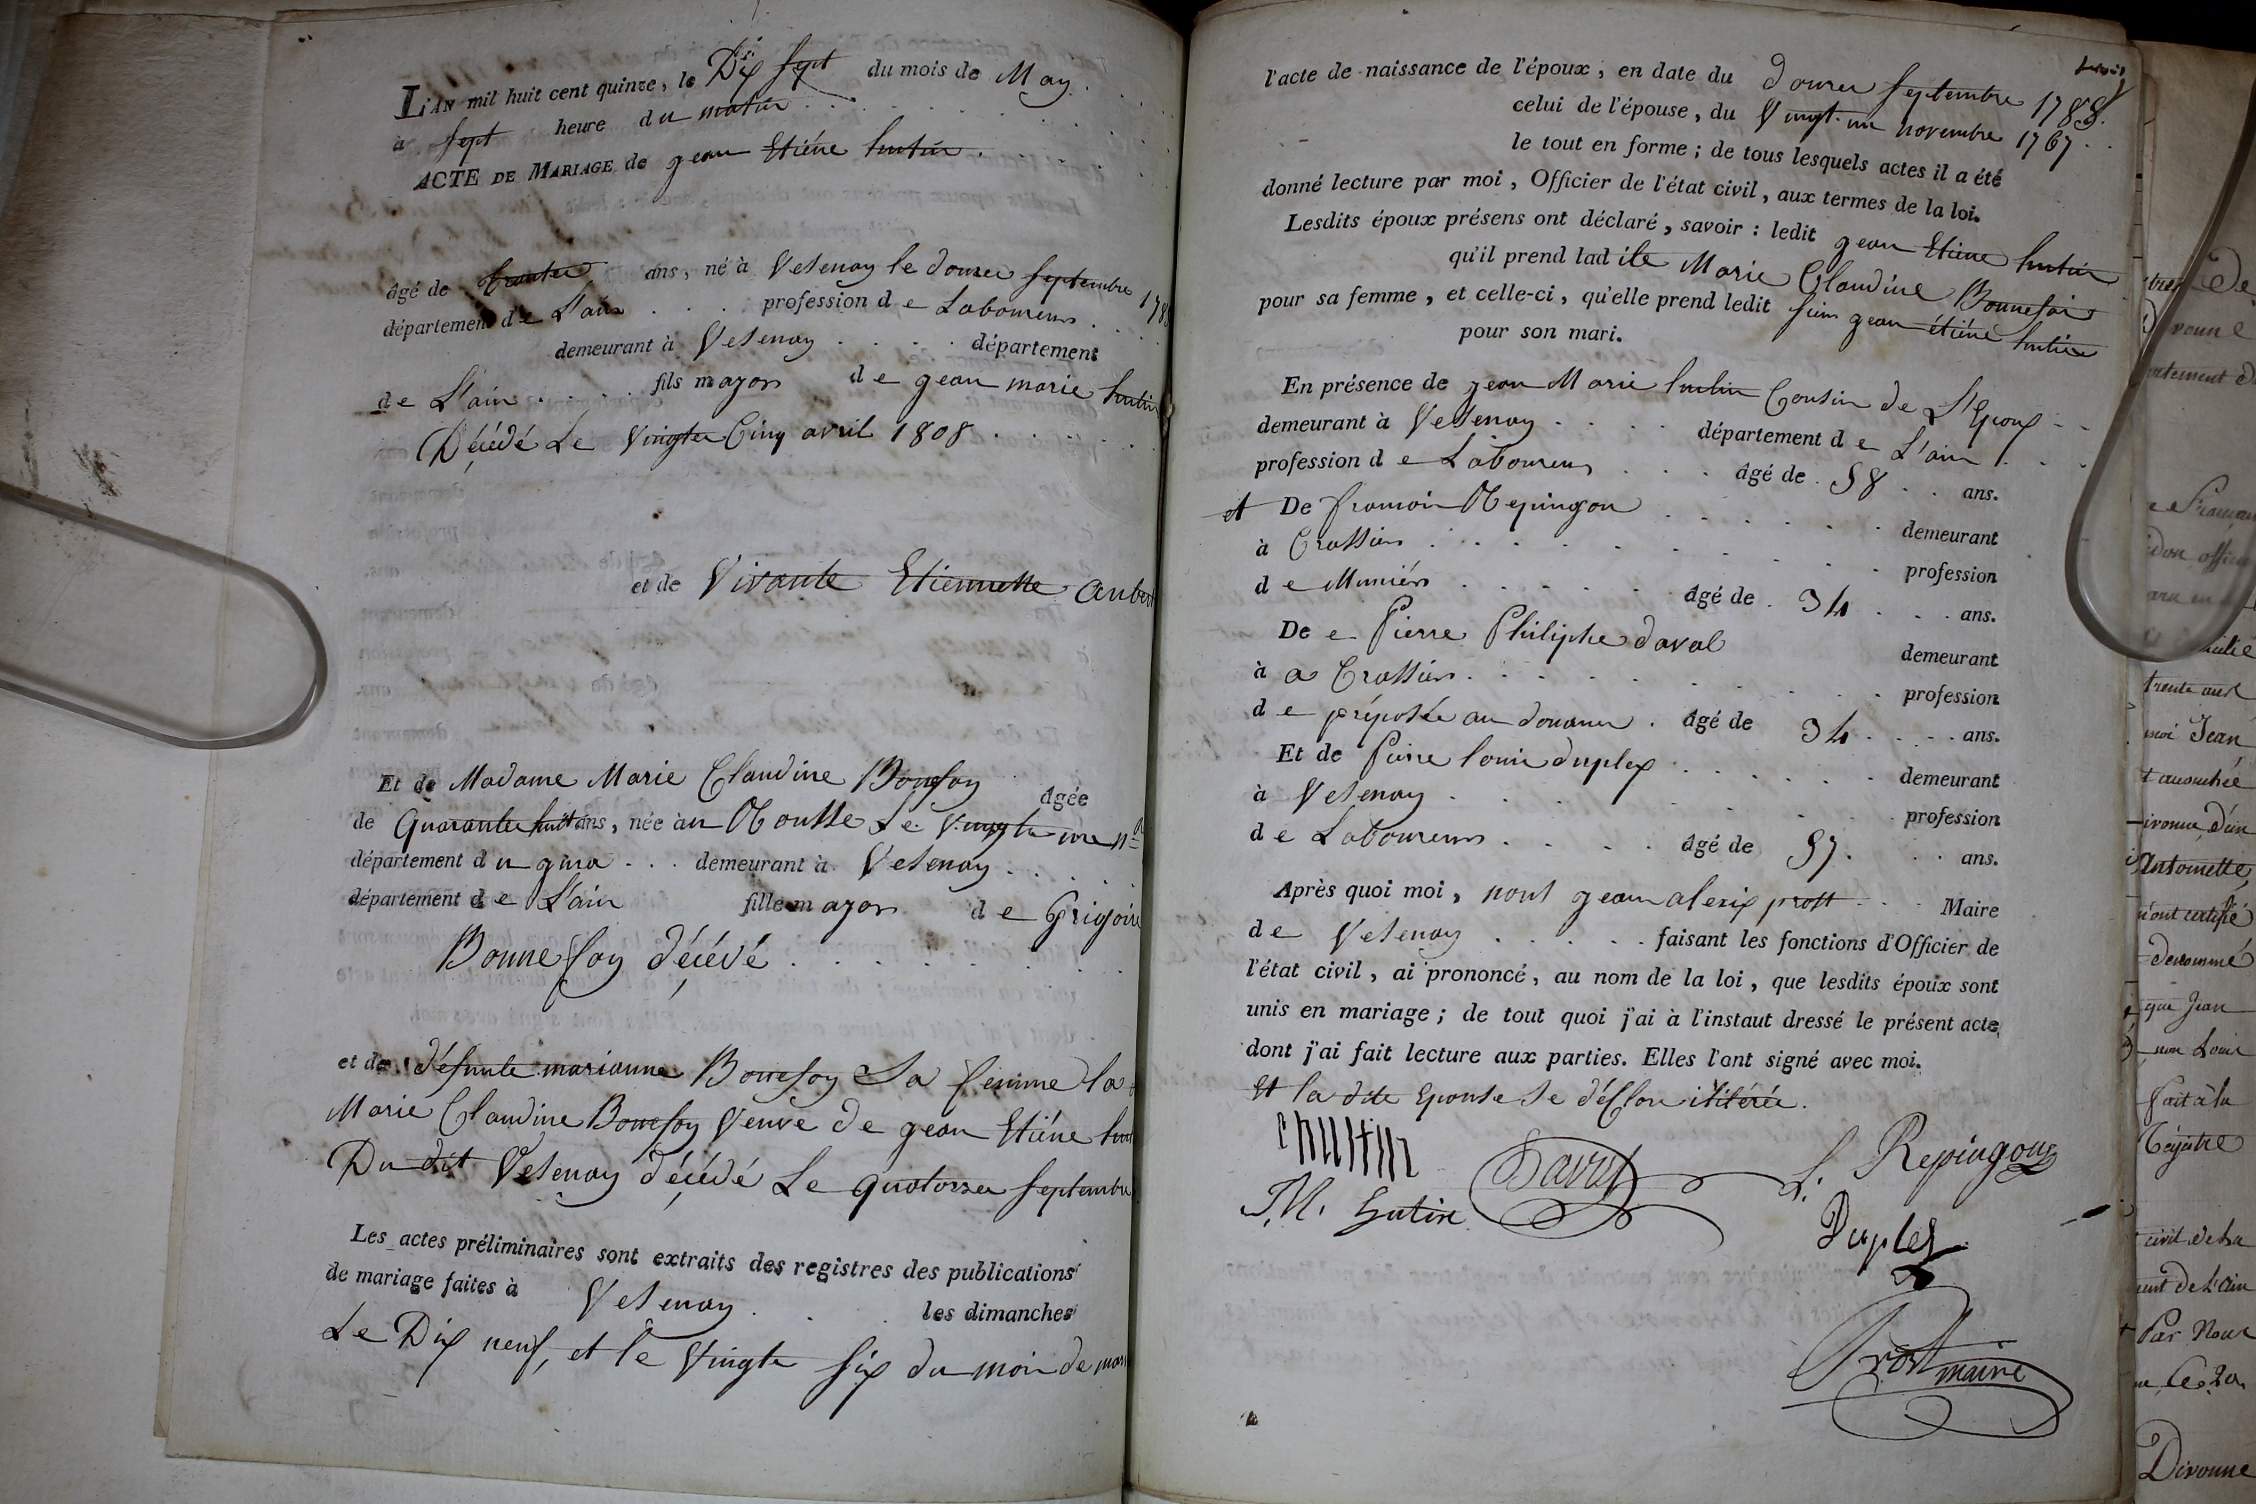 L'AN mil huit cent quinze, le Dix sept du mois de May
à sept heure du matin
ACTE DE MARIAGE de jean Etiéne hutin
âgé de trante ans, né à Vesenay le douze septembre 178
département de L'ain profession de Laboureur
demeurant à Vesenay département
de L'ain fils mayor de jean marie hutin
Décédé Le vingte Cinq avril 1808
et de Vivante Etiennette
Et de Madame Marie Claudine Bonefoy âgée
de Quarante huit ans, née au Mousse Le vingte une
département du jura demeurant à Vesenay
département de L'ain fille mayor de Grigoire
Bonnefoy décédé
et de défunte marianne Bonefoy La femme la
Marie Claudine Bonefoy Veuve de jean Etiéne
Du dit Vesenay décédé Le quatorze septembre
Les actes préliminaires sont extraits des registres des publications
de mariage faites à Vesenay les dimanches
Le Dix neuf, et le vingte six du moi de
l'acte de naissance de l'époux, en date du douze septembre 1788
celui de l'épouse, du vingt un novembre 1767
le tout en forme ; de tous lesquels actes il a été
donné lecture par moi, Officier de l'état civil, aux termes de la loi.
Lesdits époux présens ont déclaré, savoir : ledit jean Etiene hutin
qu'il prend ladite Marie Claudine Bonnefoi
pour sa femme, et celle-ci, qu'elle prend ledit sieur jean étiéne hutin
pour son mari.
En présence de jean Marie hutin Cousin de L'Epoux
demeurant à Vesenay département de L'ain
profession de Laboureur âgé de 58 ans.
et De francoi Repingon demeurant
à Crassier profession
de Muniér âgé de 34 ans.
De e Pierre Philiphe daval demeurant
à a Crassier profession
de préposée au douane âgé de 34 ans.
Et de Pierre louis duplex demeurant
à Vesenay profession
de Laboureur âgé de 57 ans.
Après quoi moi, nous jean alexix prost Maire
de Vesenay faisant les fonctions d'Officier de
l'état civil, ai prononcé, au nom de la loi, que lesdits époux sont
unis en mariage ; de tout quoi j'ai à l'instaut dressé le présent acte,
dont j'ai fait lecture aux parties. Elles l'ont signé avec moi.
Et la dite Epouse se déClare ilitérée.
f. Repingon
J. M. hutin
Duplex
Prost maire